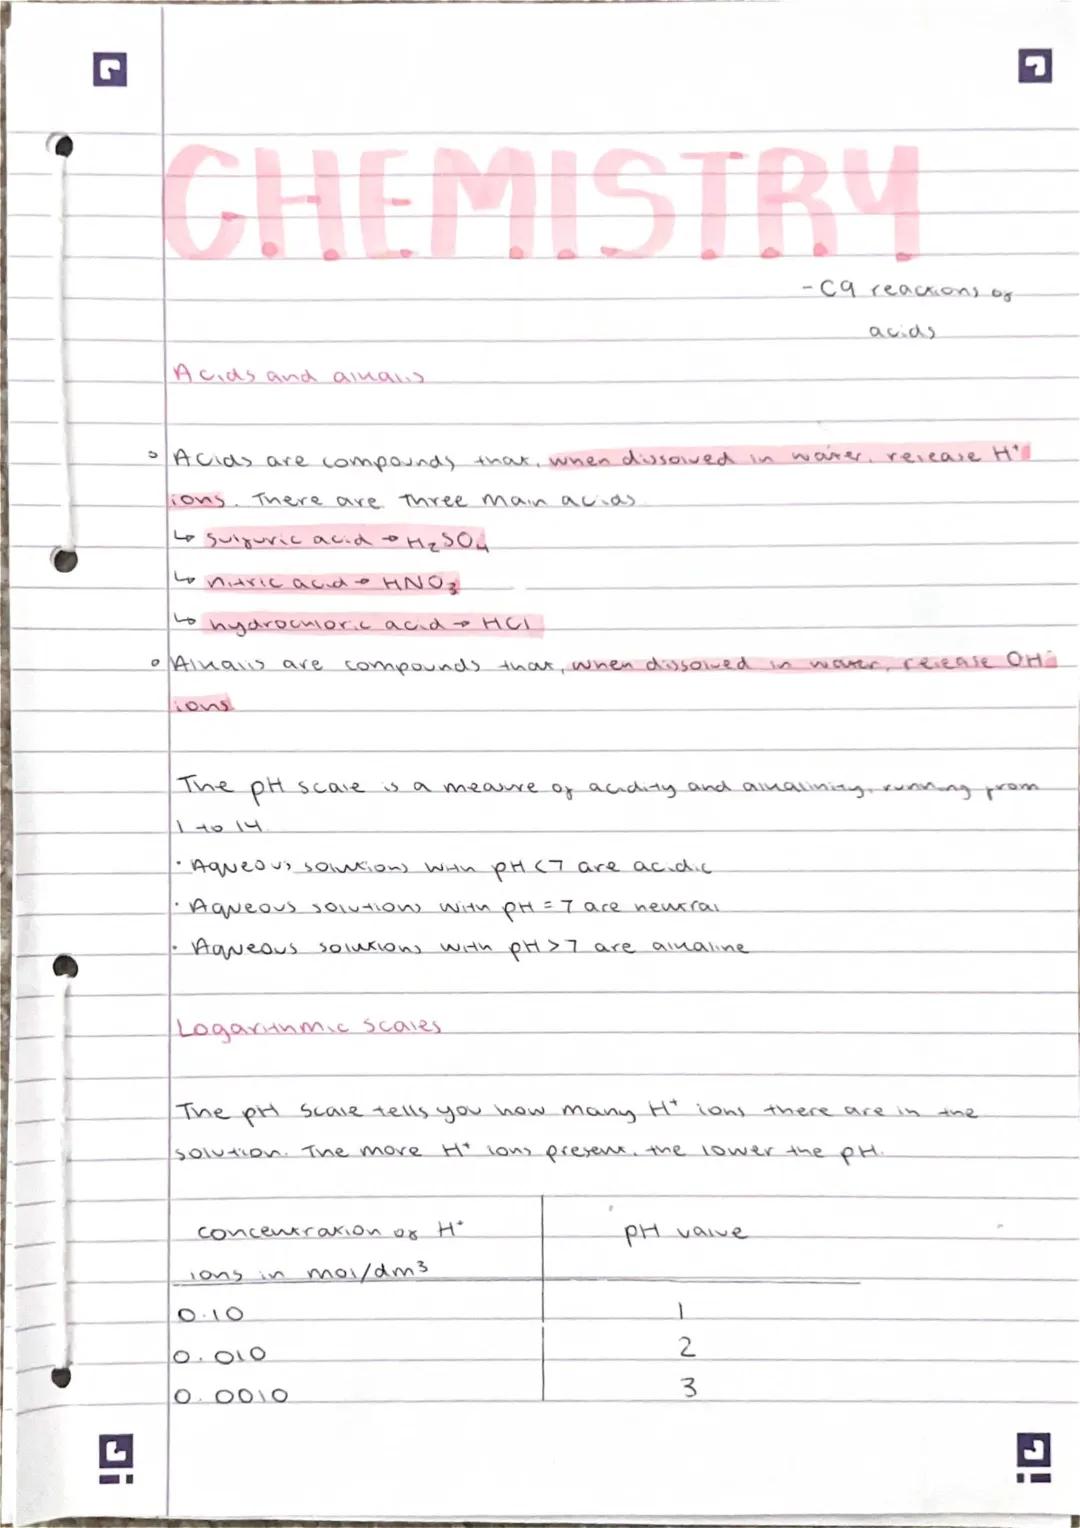 CHEMISTRY
- C9 reactions of
acids
Acids and alkalis
Acids are compounds that, when dissolved in water, release H⁺
ions. There are three main acids
↳ sulfuric acid → H₂SO₄
↳ nitric acid → HNO₃
↳ hydrochloric acid → HCl
Alkalis are compounds that, when dissolved in water, release OH⁻
ions
The pH scale is a measure of acidity and alkalinity, running from
1 to 14
· Aqueous solutions with pH < 7 are acidic
· Aqueous solutions with pH = 7 are neutral
· Aqueous solutions with pH > 7 are alkaline
Logarithmic scales
The pH scale tells you how many H⁺ ions there are in the
solution. The more H⁺ ions present, the lower the pH.
concentration of H⁺ pH value
ions in mol/dm³
0.10 1
0.010 2
0.0010 3